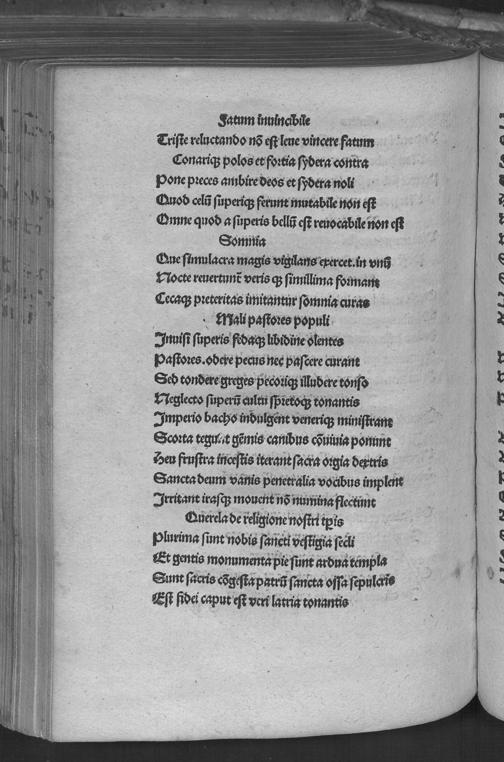 Fatum inuincibile
Triste reluctando nō est leue vincere fatum
Conariqꝫ polos et fortia sydera contra
Pone preces ambire deos et sydera noli
Quod celū superiqꝫ ferunt mutabile non est
Omne quod a superis bellū est reuocabile non est
Somnia
Que simulacra magis vigilans exercet.in vnū
Nocte reuertunt᷑ veris qꝫ simillima formant
Cecaqꝫ preteritas imitantur somnia curas
Mali pastores populi
Inuisi superis fedaqꝫ libidine olentes
Pastores.odere pecus nec pascere curant
Sed tondere greges pecoriqꝫ illudere tonso
Neglecto superū cultu spretoqꝫ tonantis
Imperio bacho indulgent veneriqꝫ ministrant
Scorta gēmis canibus cōuiuia ponunt
Heu frustra incestis iterant sacra orgia dextris
Sancta deum vanis penetralia vocibus implent
Irritant irasqꝫ mouent nō numina flectunt
Querela de religione nostri tp̄is
Plurima sunt nobis sancti vestigia secli
Et gentis monumenta pie sunt ardua templa
Sunt sacris cōgesta patrū sancta ossa sepulcris
Est fidei caput est veri latria tonantis